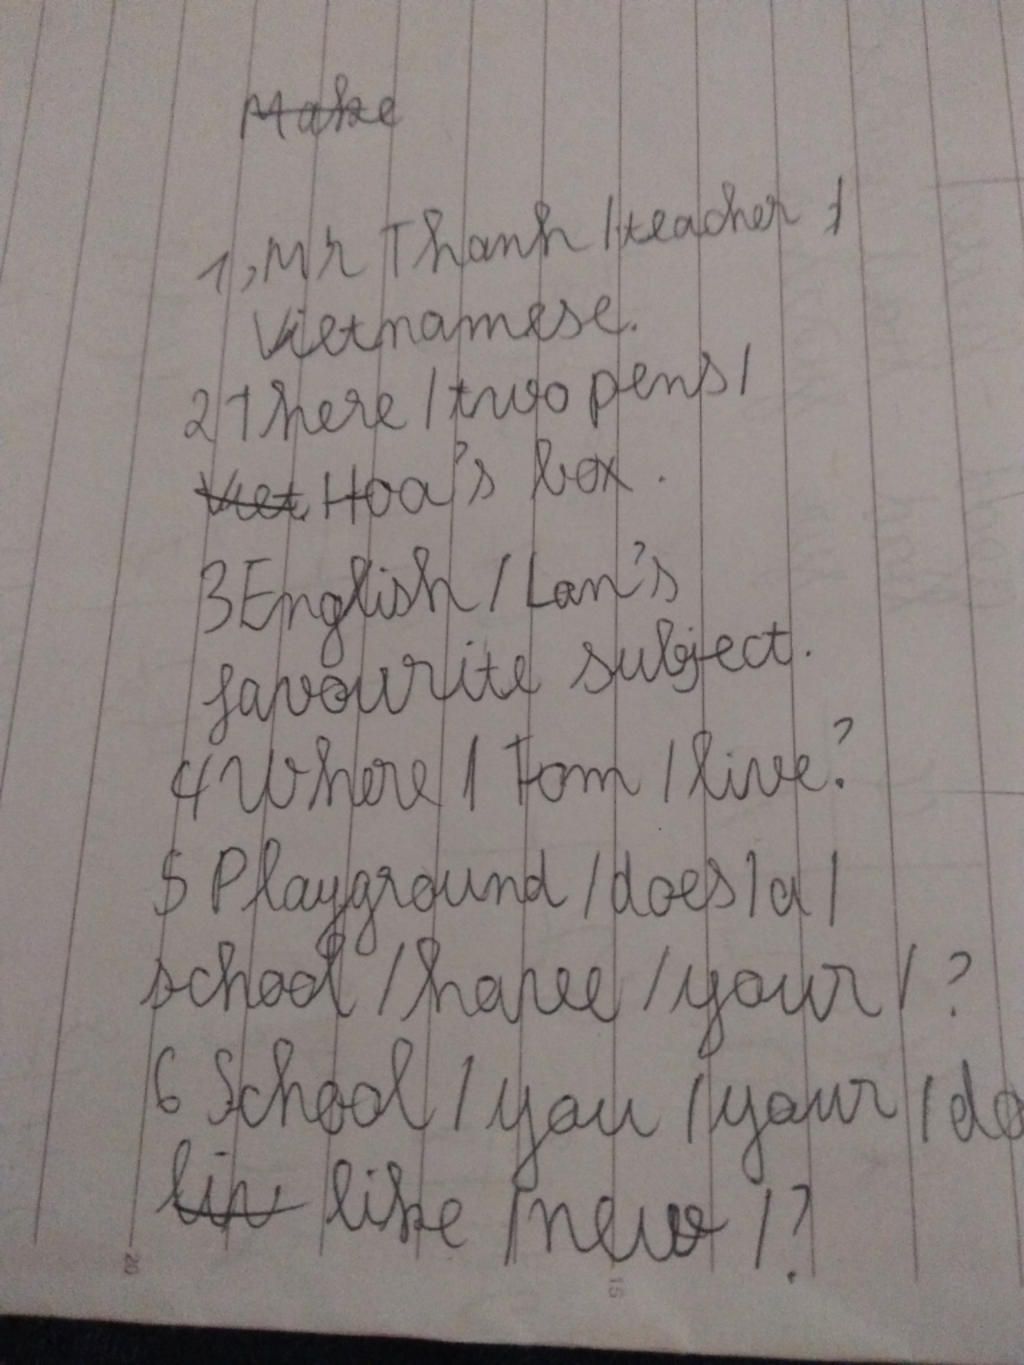 Make
1, Mr Thanh / teacher /
Vietnamese.
2 There / two pens /
Viet Hoa's box.
3 English / Lan's
favourite subject.
4 Where / Tom / live?
5 Playground / does / a /
school / have / your / ?
6 School / you / your / do
liv like / new / ?
20
15